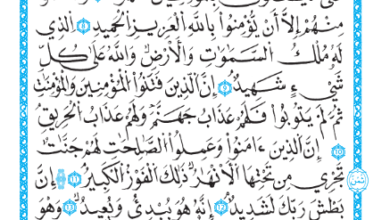 مِنْهُمْ إِلَّا أَن يُؤْمِنُوا بِاللَّهِ الْعَزِيزِ الْحَمِيدِ ﴿٨﴾ الَّذِي
لَهُ مُلْكُ السَّمَٰوَٰتِ وَالْأَرْضِ وَاللَّهُ عَلَىٰ كُلِّ
شَيْءٍ شَهِيدٌ ﴿٩﴾ إِنَّ الَّذِينَ فَتَنُوا الْمُؤْمِنِينَ وَالْمُؤْمِنَٰتِ
ثُمَّ لَمْ يَتُوبُوا فَلَهُمْ عَذَابُ جَهَنَّمَ وَلَهُمْ عَذَابُ الْحَرِيقِ
﴿١٠﴾ إِنَّ الَّذِينَ ءَامَنُوا وَعَمِلُوا الصَّٰلِحَٰتِ لَهُمْ جَنَّٰتٌ
تَجْرِي مِن تَحْتِهَا الْأَنْهَٰرُ ذَٰلِكَ الْفَوْزُ الْكَبِيرُ ﴿١١﴾ إِنَّ
بَطْشَ رَبِّكَ لَشَدِيدٌ ﴿١٢﴾ إِنَّهُ هُوَ يُبْدِئُ وَيُعِيدُ ﴿١٣﴾ وَهُوَ